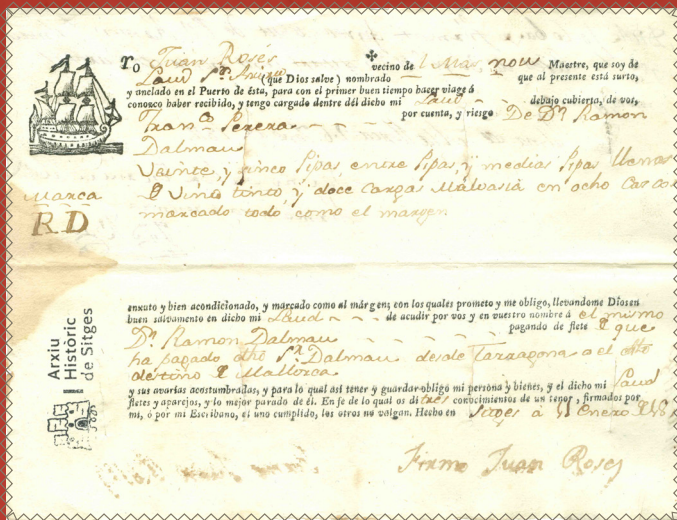 Yo Juan Rosés vecino de l Mas nou Maestre, que soy de
Laud Sn. Antonio (que Dios salve) nombrado que al presente está surto,
y anclado en el Puerto de ésta, para con el primer buen tiempo hacer viage á
conozco haber recibido, y tengo cargado dentre dél dicho mi Laud debajo cubierta, de vos,
Franco. Perera por cuenta, y riesgo De Dn. Ramon
Dalmau
Veinte, y sinco Pipas, entre Pipas, y medias Pipas llenas
Vino tinto, y doce cargas Malvasiá en ocho
marcado todo como el margen
Marca
R.D
enxuto y bien acondicionado, y marcado como al márgen; con los quales prometo y me obligo, llevandome Dios en
buen salvamento en dicho mi Laud de acudir por vos y en vuestro nombre á el mismo
Dn. Ramon Dalmau pagando de flete que
ha pagado dho Sr. Dalmau desde Tarragona a el dho
destino Mallorca
y sus avarias acostumbradas, y para lo qual asi tener y guardar obligo mi persona y bienes, y el dicho mi Laud
fletes y aparejos, y lo mejor parado de él. En fe de lo qual os di tres conocimientos de un tenor, firmados por
mi, ó por mi Escribano, el uno cumplido, los otros no valgan. Hecho en Sitges á 11 Enero
Firmo Juan Roses
Arxiu
Històric
de Sitges